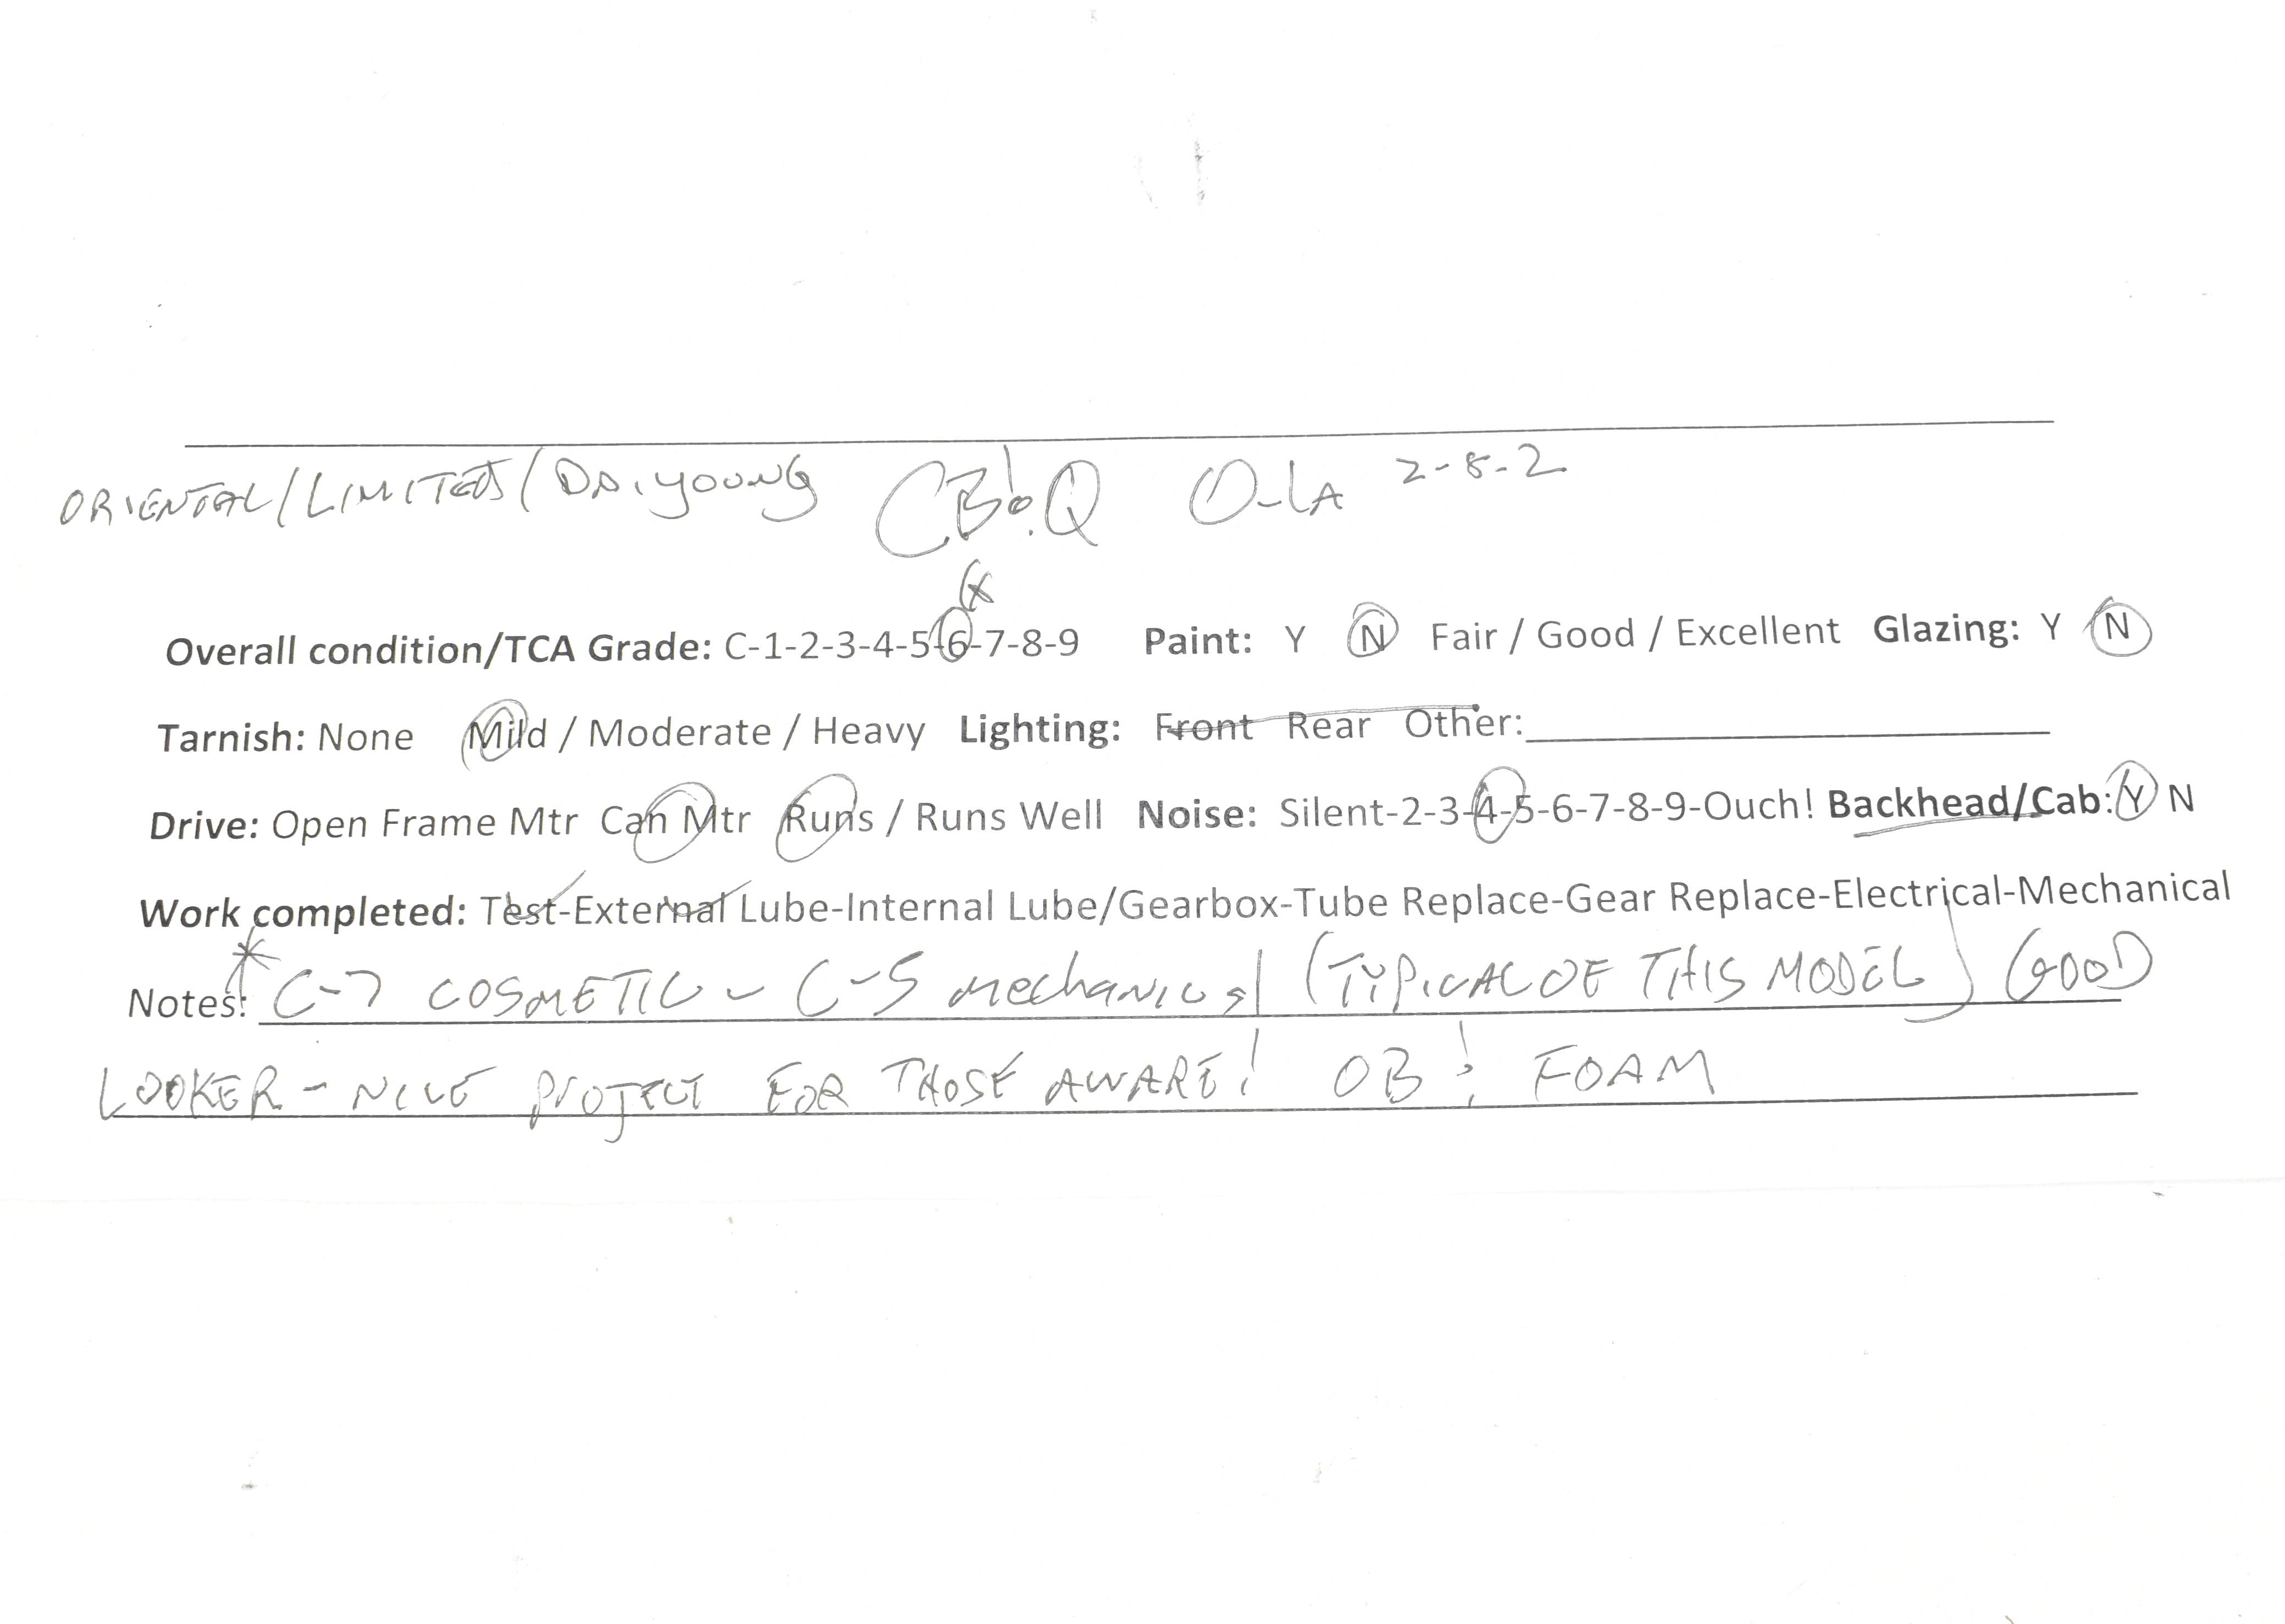 ORIENTAL/LIMITED/DAIYOUNG CB&Q O-1A 2-8-2
*
Overall condition/TCA Grade: C-1-2-3-4-5-6-7-8-9 Paint: Y N Fair / Good / Excellent Glazing: Y N
Tarnish: None Mild / Moderate / Heavy Lighting: Front Rear Other:
Drive: Open Frame Mtr Can Mtr Runs / Runs Well Noise: Silent-2-3-4-5-6-7-8-9-Ouch! Backhead/Cab: Y N
Work completed: Test-External Lube-Internal Lube/Gearbox-Tube Replace-Gear Replace-Electrical-Mechanical
Notes: * C-7 COSMETIC - C-5 mechanical (TYPICAL OF THIS MODEL) GOOD
LOOKER - NICE PROJECT FOR THOSE AWARE! OB & FOAM